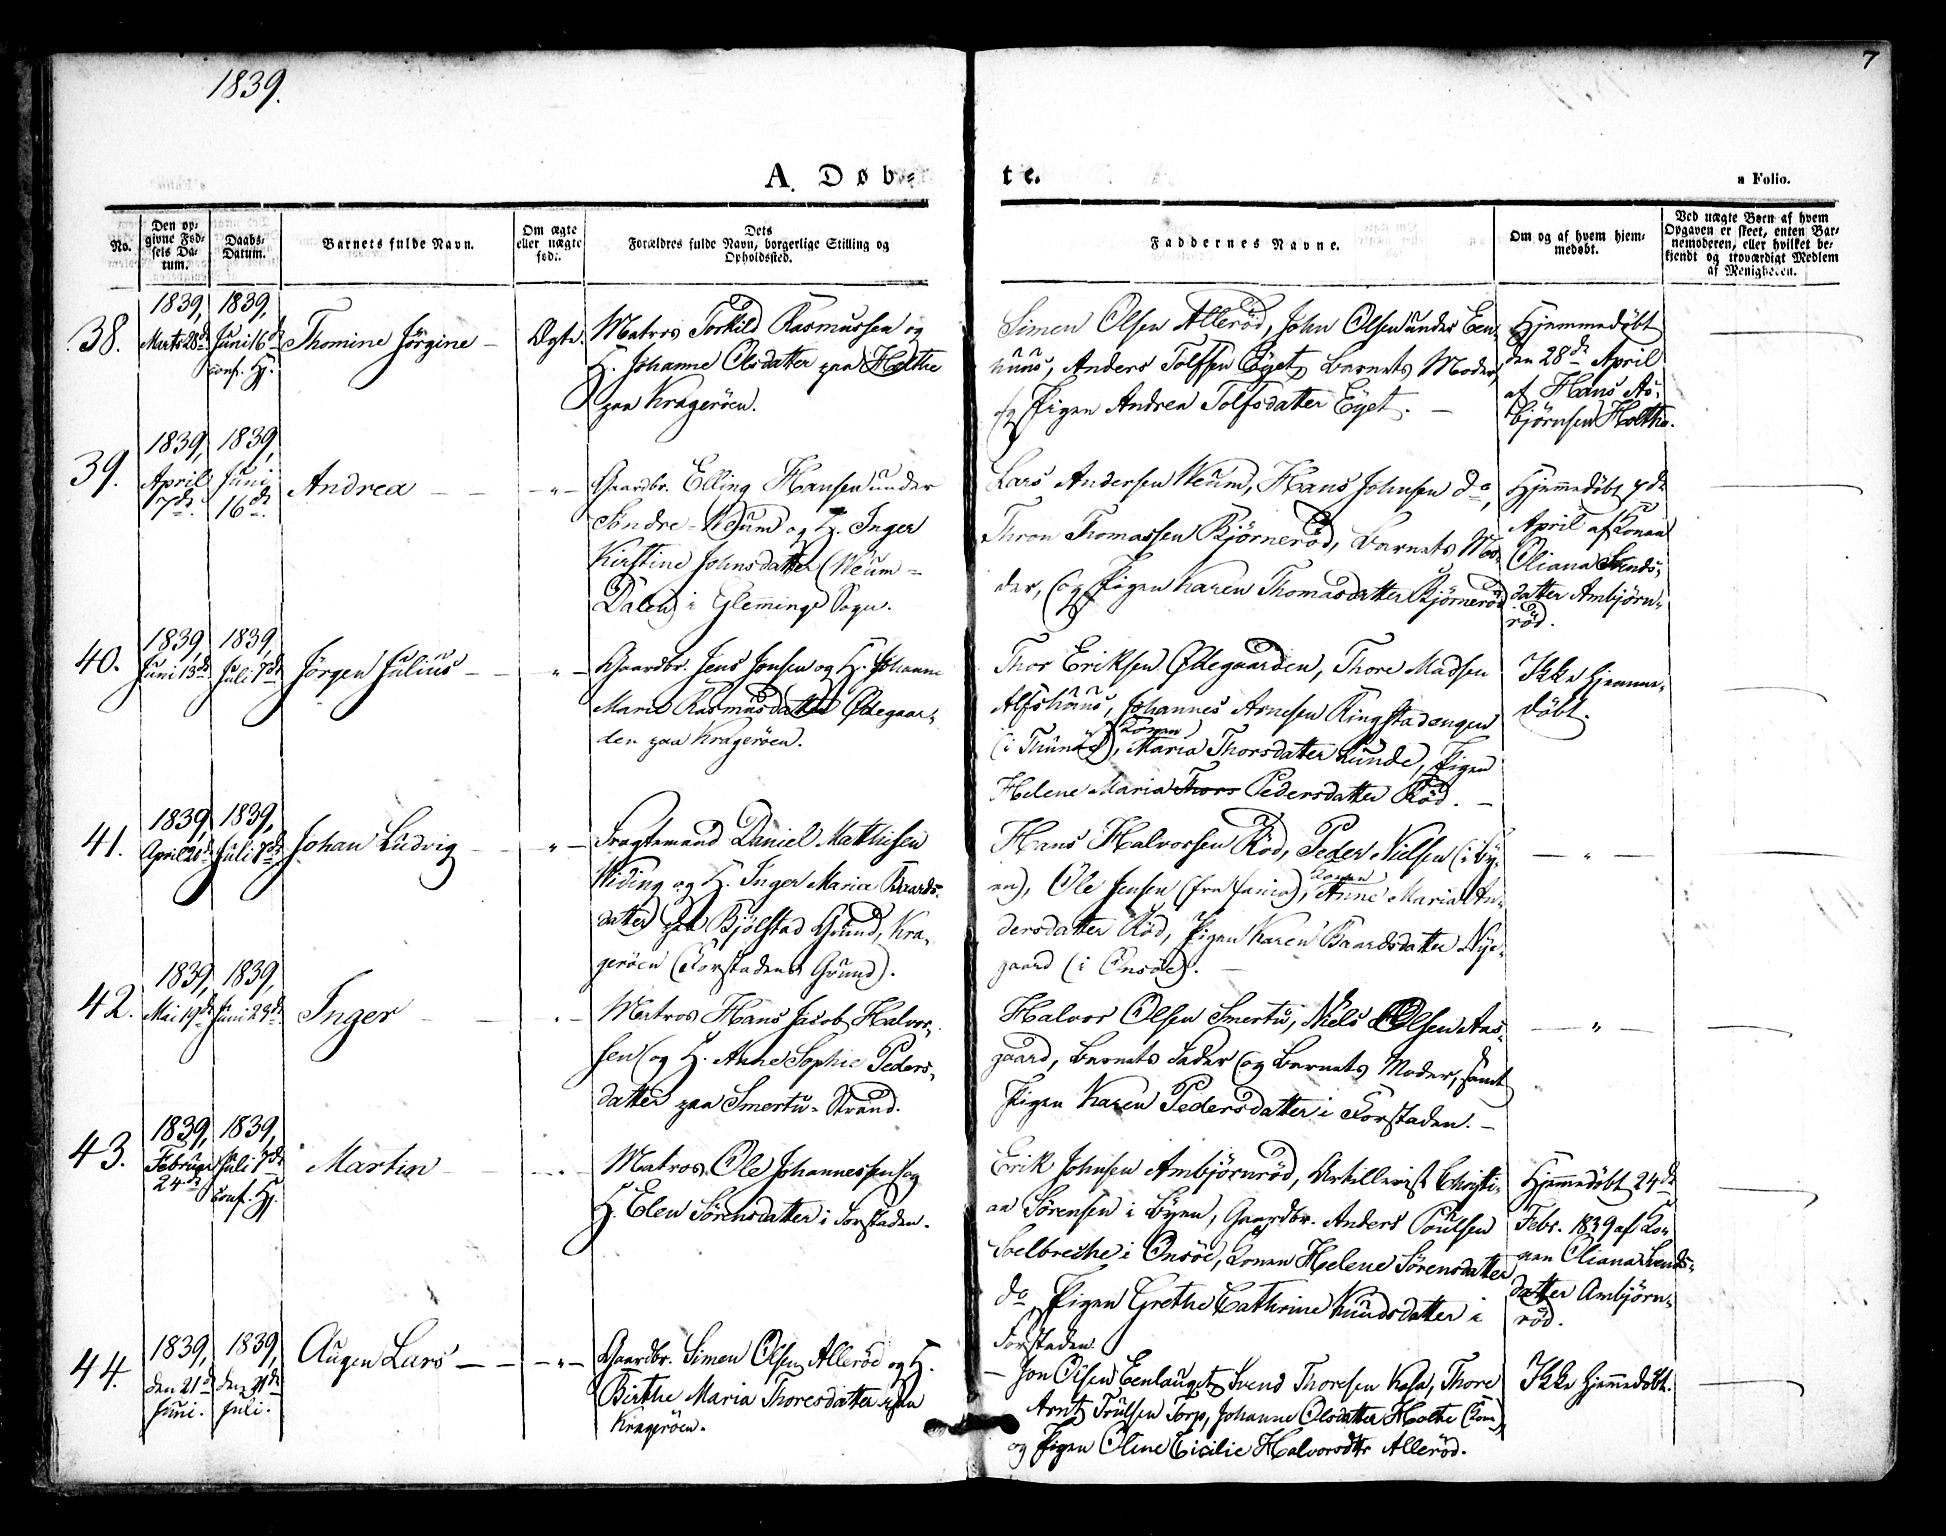 7
1839.
A. Døb-
te.
a Folio.
No.
Den op-
givne Fød-
sels Da-
tum.
Daabs-
Datum.
Barnets fulde Navn.
Om ægte
eller uægte
født.
Dets
Forældres fulde Navn, borgerlige Stilling og
Opholdssted.
Faddernes Navne.
Om og af hvem hjem-
medøbt.
Ved uægte Børn af hvem
Opgaven er skeet, enten Bar-
nemoderen, eller hvilket be-
kjendt og troværdigt Medlem
af Menigheden.
38.
1839,
Marts 28de
1839,
Juni 16de
conf. Hj.
Thomine Jörgine —
Ægte.
Matros Torkild Rasmussen og
H. Johanne Olsdatter paa Holthe
paa Krageröen.
Simen Olsen Alleröd, John Olsen under Een-
huus, Anders Tolfsen Eget, Barnets Moder,
og Pigen Andrea Tolfsdatter Eget. —
Hjemmedöbt
den 28de April
af Hans As-
björnsen Holthe.
39.
1839,
April
7de.
1839,
Juni
16de.
Andrea — —
— " —
Gaardbr. Elling Hansen under
Söndre-Weum og H. Inger
Kirstine Johnsdatter (Weum-
Dalen) i Glemminge Sogn.
Lars Andersen Weum, Hans Johnsen do,
Thron Thomassen Björneröd, Barnets Mo-
der, og Pigen Karen Thomasdatter Björneröd
Hjemmedöbt 7de
April af Konen
Oliana Svends-
datter Ambjörn-
röd.
40.
1839,
Juni 13de
1839,
Juli 7de
Jörgen Julius — —
— " —
Gaardbr. Jens Jensen og H. Johanne
Marie Rasmusdatter Ödegaar-
den paa Krageröen.
Thor Eriksen Ödegaarden, Thore Madsen
Alfshuus, Johannes Arnesen Ringstadengen
Konen
(i Thunöe), Maria Thorsdatter Lunde, Pigen
Helene Maria Thors Pedersdatter Röd. —
Ikke hjemme-
döbt.
41.
1839,
April 20de
1839,
Juli 7de
Johan Ludvig — —
— " —
Fragtemand Daniel Mathisen
Widing og H. Inger Maria Baards-
datter paa Bjölstad Grund, Kra-
geröen (Forstadens Grund).
Hans Halvorsen Röd, Peder Nielsen (i By-
Konen
en), Ole Jensen (fra Janio), Anne Maria An-
dersdatter Röd, Pigen Karen Baardsdatter Nye-
gaard (i Onsöe). —
— " —
42.
1839,
Mai 19de
1839,
Juni 29de
Inger — —
" —
Matros Hans Jacob Halvor-
sen og H. Anne Sophie Peders-
datter paa Smertu-Strand.
Halvor Olsen Smertu, Niels Olsen Aas-
gaard, Barnets Fader og Barnets Moder, samt
Pigen Karen Pedersdatter i Forstaden. —
— " —
43.
1839,
Februar
24de.
1839,
Juli 7de
conf. Hj.
Martin — —
— " —
Matros Ole Johannessen og
H. Elen Sörensdatter i Forstaden.
Erik Johnsen Ambjörnröd, Artillerist Christi-
an Sörensen i Byen, Gaardbr. Anders Poulsen
Soelbrecke i Onsöe, Konen Helene Sörensdatter
do, Pigen Grethe Cathrine Knudsdatter i
Forstaden.
Hjemmedöbt 24de
Febr. 1839 af Ko-
nen Oliana Svends-
datter Ambjörn-
röd.
44.
1839,
den 21de
Juni.
1839,
den 21de
Juli.
Augen Lars — —
— " —
Gaardbr. Simen Olsen Alleröd og H.
Birthe Maria Thoresdatter paa
Krageröen.
— Jon Olsen Eenhuuset, Svend Thoresen Kasa, Thore
Arnt Trulsen Torp, Johanne Olsdatter Holte (Kone),
og Pigen Oline Cicilie Halvorsdtr Alleröd.
Ikke hjemmedöbt.